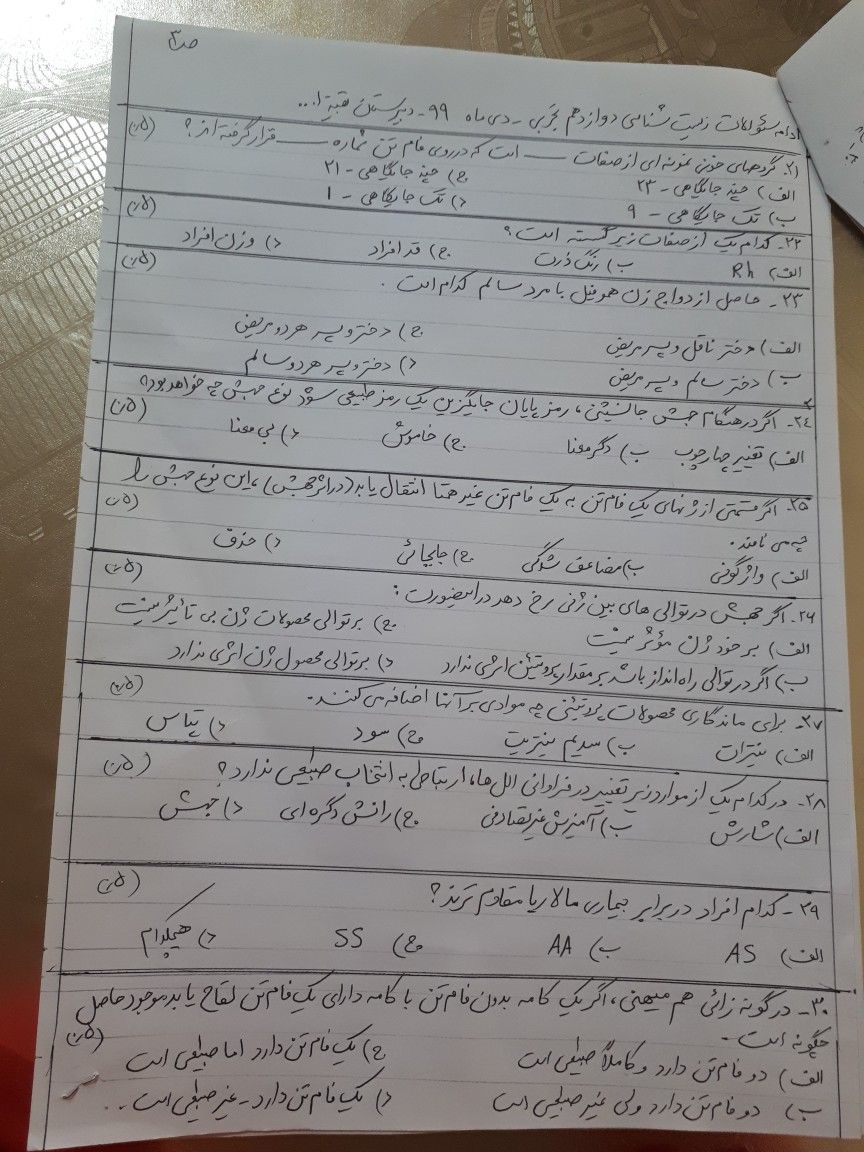 ص۳
ادامه سئوالات زیست شناسی دوازدهم تجربی - دی ماه ۹۹ - دبیرستان
۲۱- گروههای خونی نمونه ای از صفات ـــــ است که در روی فام تن شماره ـــــ قرار گرفته اند؟ (۰/۵)
الف) چند جایگاهی - ۲۳ ج) چند جایگاهی - ۲۱
ب) تک جایگاهی - ۹ د) تک جایگاهی - ۱
۲۲- کدام یک از صفات زیر گسسته است؟ (۰/۵)
الف) Rh ب) رنگ ذرت ج) قد افراد د) وزن افراد
۲۳- حاصل ازدواج زن هموفیل با مرد سالم کدام است. (۰/۵)
الف) دختر ناقل و پسر مریض ج) دختر و پسر هر دو مریض
ب) دختر سالم و پسر مریض د) دختر و پسر هر دو سالم
۲۴- اگر در هنگام جهش جانشینی، رمز پایان جایگزین یک رمز طبیعی شود نوع جهش چه خواهد بود؟ (۰/۵)
الف) تغییر چهارچوب ب) دگرمعنا ج) خاموش د) بی معنا
۲۵- اگر قسمتی از ژنهای یک فام تن به یک فام تن غیر همتا انتقال یابد (در اثر جهش)، این نوع جهش را
چه می نامند. (۰/۵)
الف) واژگونی ب) مضاعف شدگی ج) جابجائی د) حذف
۲۶- اگر جهش در توالی های بین ژنی رخ دهد در اینصورت: (۰/۵)
الف) بر خود ژن مؤثر نیست ج) بر توالی محصولات ژن بی تأثیر نیست
ب) اگر در توالی راه انداز باشد بر مقدار پروتئین اثری ندارد د) بر توالی محصول ژن اثری ندارد
۲۷- برای ماندگاری محصولات پروتئینی چه موادی بر آنها اضافه می کنند. (۰/۵)
الف) نیترات ب) سدیم نیتریت ج) سود د) پتاس
۲۸- در کدام یک از موارد زیر تغییر در فراوانی الل ها، ارتباطی به انتخاب طبیعی ندارد؟ (۰/۵)
الف) شارش ب) آمیزش غیرتصادفی ج) رانش دگره ای د) جهش
۲۹- کدام افراد در برابر بیماری مالاریا مقاوم ترند؟ (۰/۵)
الف) AS ب) AA ج) SS د) هیچکدام
۳۰- در گونه زائی هم میهنی، اگر یک کامه بدون فام تن با کامه دارای یک فام تن لقاح یابد موجود حاصل
چگونه است. (۰/۵)
الف) دو فام تن دارد و کاملاً طبیعی است ج) یک فام تن دارد اما طبیعی است
ب) دو فام تن دارد ولی غیر طبیعی است د) یک فام تن دارد - غیر طبیعی است.